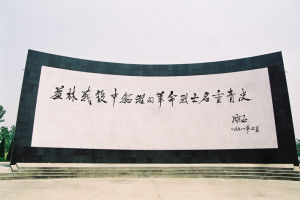 益林战役中牺牲的革命烈士名垂青史